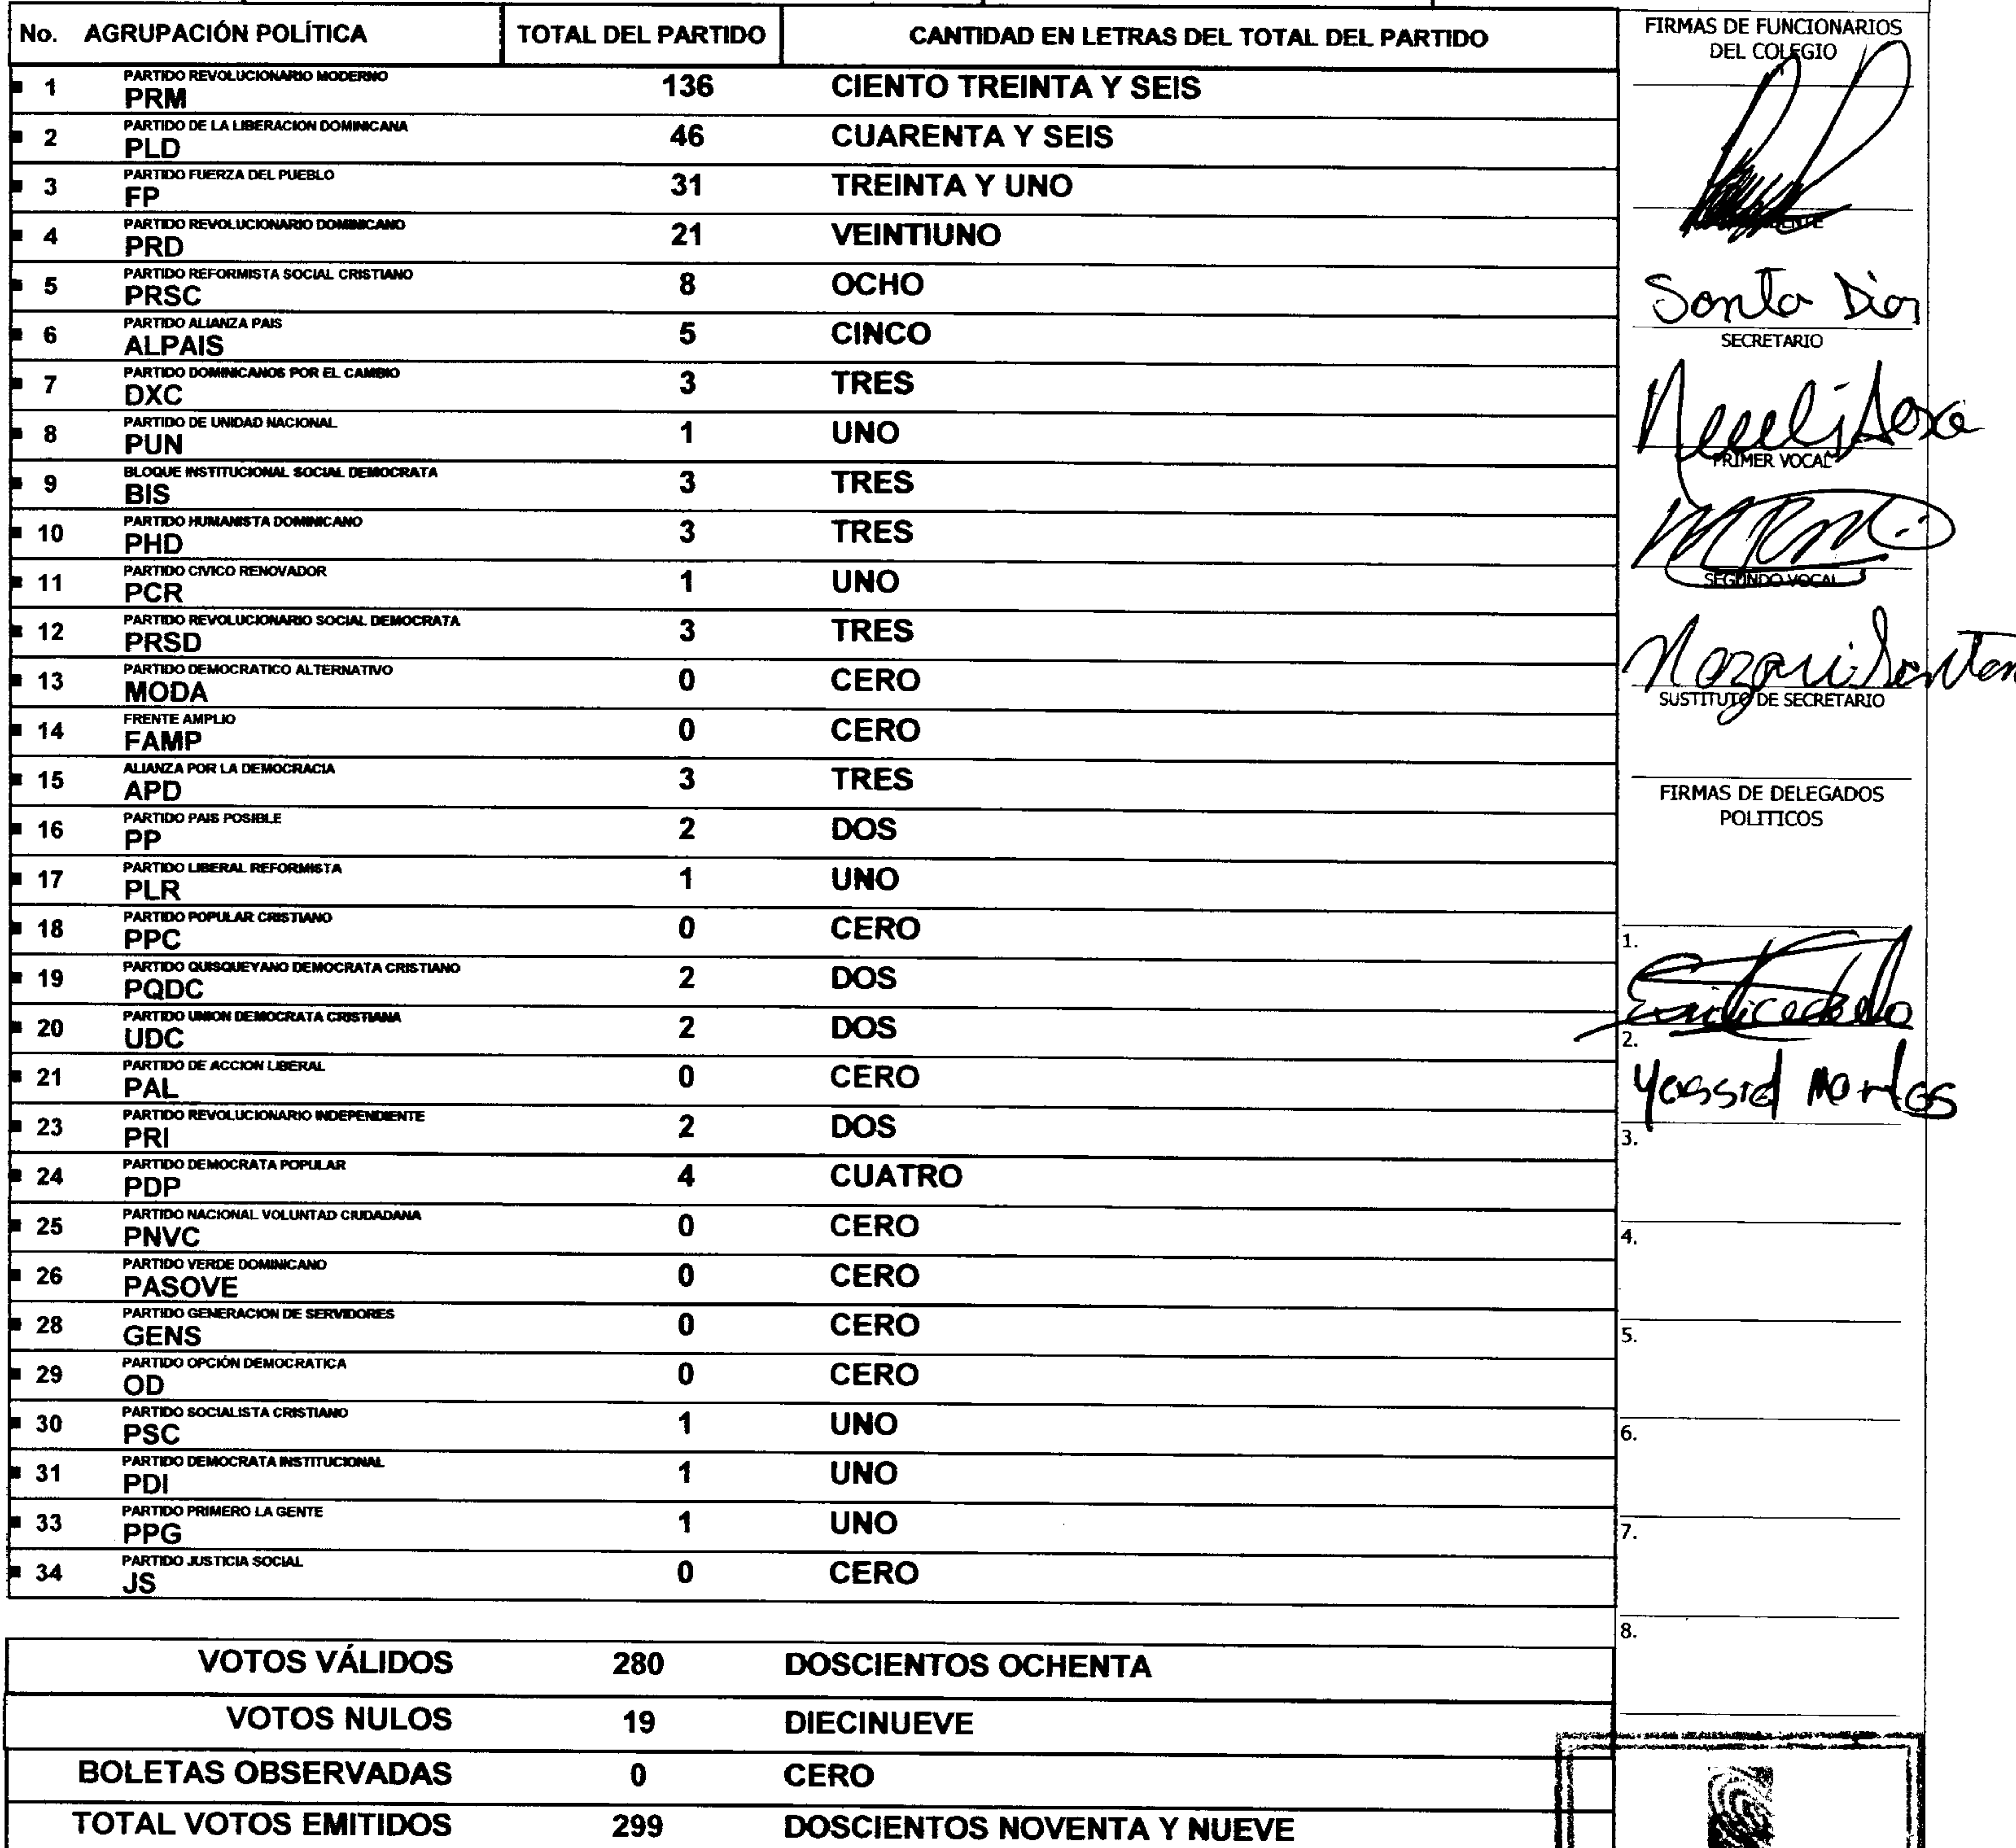 No. AGRUPACIÓN POLÍTICA TOTAL DEL PARTIDO CANTIDAD EN LETRAS DEL TOTAL DEL PARTIDO
PARTIDO REVOLUCIONARIO MODERNO
1 PRM 136 CIENTO TREINTA Y SEIS
PARTIDO DE LA LIBERACION DOMINICANA
2 PLD 46 CUARENTA Y SEIS
PARTIDO FUERZA DEL PUEBLO
3 FP 31 TREINTA Y UNO
PARTIDO REVOLUCIONARIO DOMINICANO
4 PRD 21 VEINTIUNO
PARTIDO REFORMISTA SOCIAL CRISTIANO
5 PRSC 8 OCHO
PARTIDO ALIANZA PAIS
6 ALPAIS 5 CINCO
PARTIDO DOMINICANOS POR EL CAMBIO
7 DXC 3 TRES
PARTIDO DE UNIDAD NACIONAL
8 PUN 1 UNO
BLOQUE INSTITUCIONAL SOCIAL DEMOCRATA
9 BIS 3 TRES
PARTIDO HUMANISTA DOMINICANO
10 PHD 3 TRES
PARTIDO CIVICO RENOVADOR
11 PCR 1 UNO
PARTIDO REVOLUCIONARIO SOCIAL DEMOCRATA
12 PRSD 3 TRES
PARTIDO DEMOCRATICO ALTERNATIVO
13 MODA 0 CERO
FRENTE AMPLIO
14 FAMP 0 CERO
ALIANZA POR LA DEMOCRACIA
15 APD 3 TRES
PARTIDO PAIS POSIBLE
16 PP 2 DOS
PARTIDO LIBERAL REFORMISTA
17 PLR 1 UNO
PARTIDO POPULAR CRISTIANO
18 PPC 0 CERO
PARTIDO QUISQUEYANO DEMOCRATA CRISTIANO
19 PQDC 2 DOS
PARTIDO UNION DEMOCRATA CRISTIANA
20 UDC 2 DOS
PARTIDO DE ACCION LIBERAL
21 PAL 0 CERO
PARTIDO REVOLUCIONARIO INDEPENDIENTE
23 PRI 2 DOS
PARTIDO DEMOCRATA POPULAR
24 PDP 4 CUATRO
PARTIDO NACIONAL VOLUNTAD CIUDADANA
25 PNVC 0 CERO
PARTIDO VERDE DOMINICANO
26 PASOVE 0 CERO
PARTIDO GENERACION DE SERVIDORES
28 GENS 0 CERO
PARTIDO OPCIÓN DEMOCRATICA
29 OD 0 CERO
PARTIDO SOCIALISTA CRISTIANO
30 PSC 1 UNO
PARTIDO DEMOCRATA INSTITUCIONAL
31 PDI 1 UNO
PARTIDO PRIMERO LA GENTE
33 PPG 1 UNO
PARTIDO JUSTICIA SOCIAL
34 JS 0 CERO
VOTOS VÁLIDOS 280 DOSCIENTOS OCHENTA
VOTOS NULOS 19 DIECINUEVE
BOLETAS OBSERVADAS 0 CERO
TOTAL VOTOS EMITIDOS 299 DOSCIENTOS NOVENTA Y NUEVE
FIRMAS DE FUNCIONARIOS
DEL COLEGIO
SECRETARIO
PRIMER VOCAL
SEGUNDO VOCAL
SUSTITUTO DE SECRETARIO
FIRMAS DE DELEGADOS
POLITICOS
1.
2.
3.
4.
5.
6.
7.
8.